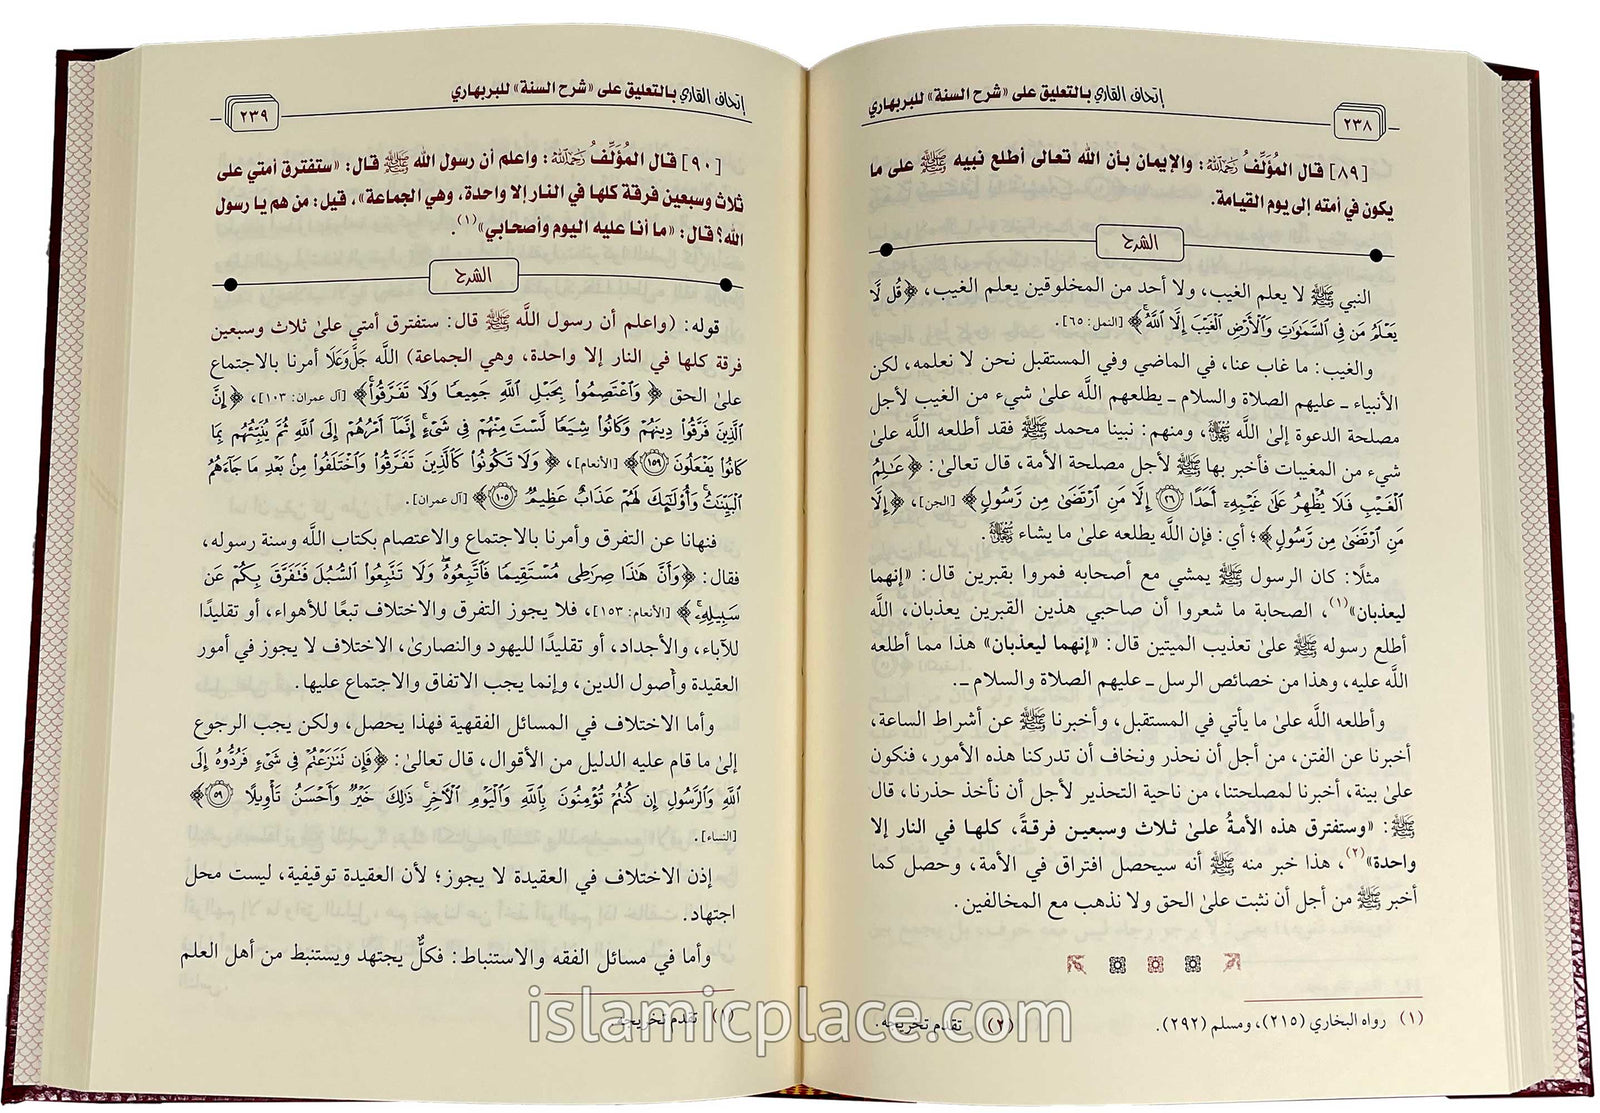 إتحاف القاري بالتعليق على «شرح السنة» للبربهاري
٢٣٨
[٨٩] قال المُؤَلِّفُ رَحِمَهُ اللَّهُ: والإيمان بأن الله تعالى أطلع نبيه ﷺ على ما
يكون في أمته إلى يوم القيامة.
الشرح
النبي ﷺ لا يعلم الغيب، ولا أحد من المخلوقين يعلم الغيب، ﴿قُل لَّا
يَعْلَمُ مَن فِي السَّمَوَاتِ وَالْأَرْضِ الْغَيْبَ إِلَّا اللَّهُ﴾ [النمل: ٦٥].
والغيب: ما غاب عنا، في الماضي وفي المستقبل نحن لا نعلمه، لكن
الأنبياء ـ عليهم الصلاة والسلام ـ يطلعهم اللَّه علىٰ شيء من الغيب لأجل
مصلحة الدعوة إلىٰ اللَّه ﷻ، ومنهم: نبينا محمد ﷺ فقد أطلعه اللَّه علىٰ
شيء من المغيبات فأخبر بها ﷺ لأجل مصلحة الأمة، قال تعالىٰ: ﴿عَالِمُ
الْغَيْبِ فَلَا يُظْهِرُ عَلَى غَيْبِهِ أَحَدًا ٢٦ إِلَّا مَنِ ارْتَضَى مِن رَّسُولٍ﴾ [الجن]، ﴿إِلَّا
مَنِ ارْتَضَى مِن رَّسُولٍ﴾؛ أي: فإن اللَّه يطلعه علىٰ ما يشاء ﷻ.
مثلًا: كان الرسول ﷺ يمشي مع أصحابه فمروا بقبرين قال: «إنهما
ليعذبان»(١)، الصحابة ما شعروا أن صاحبي هذين القبرين يعذبان، اللَّه
أطلع رسوله ﷺ علىٰ تعذيب الميتين قال: «إنهما ليعذبان» هذا مما أطلعه
اللَّه عليه، وهذا من خصائص الرسل ـ عليهم الصلاة والسلام ـ.
وأطلعه اللَّه علىٰ ما يأتي في المستقبل، وأخبرنا ﷺ عن أشراط الساعة،
أخبرنا عن الفتن، من أجل أن نحذر ونخاف أن تدركنا هذه الأمور، فنكون
علىٰ بينة، أخبرنا لمصلحتنا، من ناحية التحذير لأجل أن نأخذ حذرنا، قال
ﷺ: «وستفترق هذه الأمةُ علىٰ ثلاث وسبعين فرقةً، كلها في النار إلا
واحدة»(٢)، هذا خبر منه ﷺ أنه سيحصل افتراق في الأمة، وحصل كما
أخبر ﷺ من أجل أن نثبت علىٰ الحق ولا نذهب مع المخالفين.
(١) رواه البخاري (٢١٥)، ومسلم (٢٩٢).
(٢) تقدم تخريجه.
إتحاف القاري بالتعليق على «شرح السنة» للبربهاري
٢٣٩
[٩٠] قال المُؤَلِّفُ رَحِمَهُ اللَّهُ: واعلم أن رسول الله ﷺ قال: «ستفترق أمتي على
ثلاث وسبعين فرقة كلها في النار إلا واحدة، وهي الجماعة»، قيل: من هم يا رسول
الله؟ قال: «ما أنا عليه اليوم وأصحابي»(١).
الشرح
قوله: (واعلم أن رسول اللَّه ﷺ قال: ستفترق أمتي علىٰ ثلاث وسبعين
فرقة كلها في النار إلا واحدة، وهي الجماعة) اللَّه جَلَّ وَعَلَا أمرنا بالاجتماع
علىٰ الحق ﴿وَاعْتَصِمُوا بِحَبْلِ اللَّهِ جَمِيعًا وَلَا تَفَرَّقُوا﴾ [آل عمران: ١٠٣]، ﴿إِنَّ
الَّذِينَ فَرَّقُوا دِينَهُمْ وَكَانُوا شِيَعًا لَّسْتَ مِنْهُمْ فِي شَيْءٍ إِنَّمَا أَمْرُهُمْ إِلَى اللَّهِ ثُمَّ يُنَبِّئُهُم بِمَا
كَانُوا يَفْعَلُونَ ١٥٩﴾ [الأنعام]، ﴿وَلَا تَكُونُوا كَالَّذِينَ تَفَرَّقُوا وَاخْتَلَفُوا مِنْ بَعْدِ مَا جَاءَهُمُ
الْبَيِّنَاتُ وَأُولَئِكَ لَهُمْ عَذَابٌ عَظِيمٌ ١٠٥﴾ [آل عمران].
فنهانا عن التفرق وأمرنا بالاجتماع والاعتصام بكتاب اللَّه وسنة رسوله،
فقال: ﴿وَأَنَّ هَذَا صِرَاطِي مُسْتَقِيمًا فَاتَّبِعُوهُ وَلَا تَتَّبِعُوا السُّبُلَ فَتَفَرَّقَ بِكُمْ عَن
سَبِيلِهِ﴾ [الأنعام: ١٥٣]، فلا يجوز التفرق والاختلاف تبعًا للأهواء، أو تقليدًا
للآباء، والأجداد، أو تقليدًا لليهود والنصارىٰ، الاختلاف لا يجوز في أمور
العقيدة وأصول الدين، وإنما يجب الاتفاق والاجتماع عليها.
وأما الاختلاف في المسائل الفقهية فهذا يحصل، ولكن يجب الرجوع
إلىٰ ما قام عليه الدليل من الأقوال، قال تعالىٰ: ﴿فَإِن تَنَازَعْتُمْ فِي شَيْءٍ فَرُدُّوهُ إِلَى
اللَّهِ وَالرَّسُولِ إِن كُنتُمْ تُؤْمِنُونَ بِاللَّهِ وَالْيَوْمِ الْآخِرِ ذَلِكَ خَيْرٌ وَأَحْسَنُ تَأْوِيلًا ٥٩﴾
[النساء].
إذن الاختلاف في العقيدة لا يجوز؛ لأن العقيدة توقيفية، ليست محل
اجتهاد.
وأما في مسائل الفقه والاستنباط: فكلٌّ يجتهد ويستنبط من أهل العلم
(١) تقدم تخريجه.
islamicplace.com